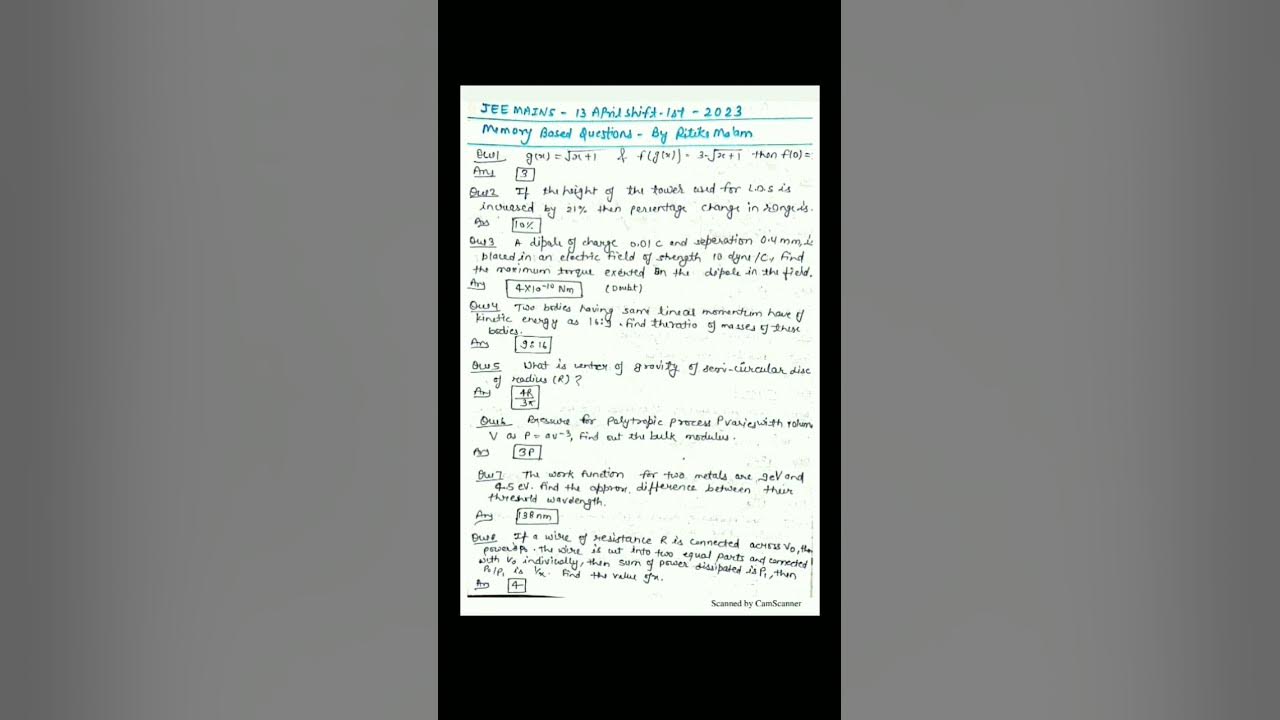 JEE MAINS - 13 April shift. 1st - 2023
Memory Based Questions - By Ritika Ma'am
Que1 g(x) = √x+1 & f(g(x)) = 3-√x+1 then f(0)=
Ans 3
Que2 If the height of the tower used for L.O.S is
increased by 21% then percentage change in range is.
Ans 10%
Que3 A dipole of charge 0.01 C and seperation 0.4 mm, is
placed in an electric field of strength 10 dyne/C, find
the maximum torque exerted on the dipole in the field.
Ans 4×10⁻¹⁰ Nm (Doubt)
Que4 Two bodies having same linear momentum have
kinetic energy as 16:9. find the ratio of masses of these
bodies.
Ans 9:16
Que5 What is center of gravity of semi-circular disc
of radius (R) ?
Ans 4R/3π
Que6 Pressure for polytropic process P varies with
V as P = aV⁻³, Find out the bulk modulus.
Ans 3P
Que7 The work function for two metals are 9eV and
4.5 eV. find the approx. difference between their
threshold wavelength.
Ans 138nm
Que8 If a wire of resistance R is connected across V₀, then
power P₀. the wire is cut into two equal parts and connected
with V₀ individually, then sum of power dissipated is P₁, then
P₀/P₁ is 1/x. Find the value of x.
Ans 4
Scanned by CamScanner